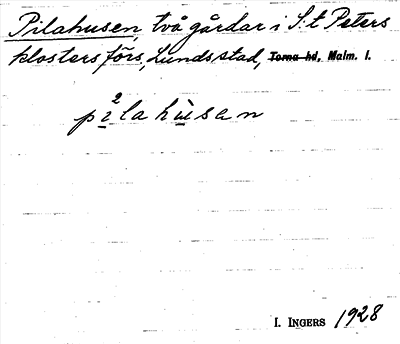 Pilahusen, två gårdar i S:t Peters
klosters förs, Lunds stad, Torna hd, Malm. l.
pi²lahùsan
I. INGERS 1928